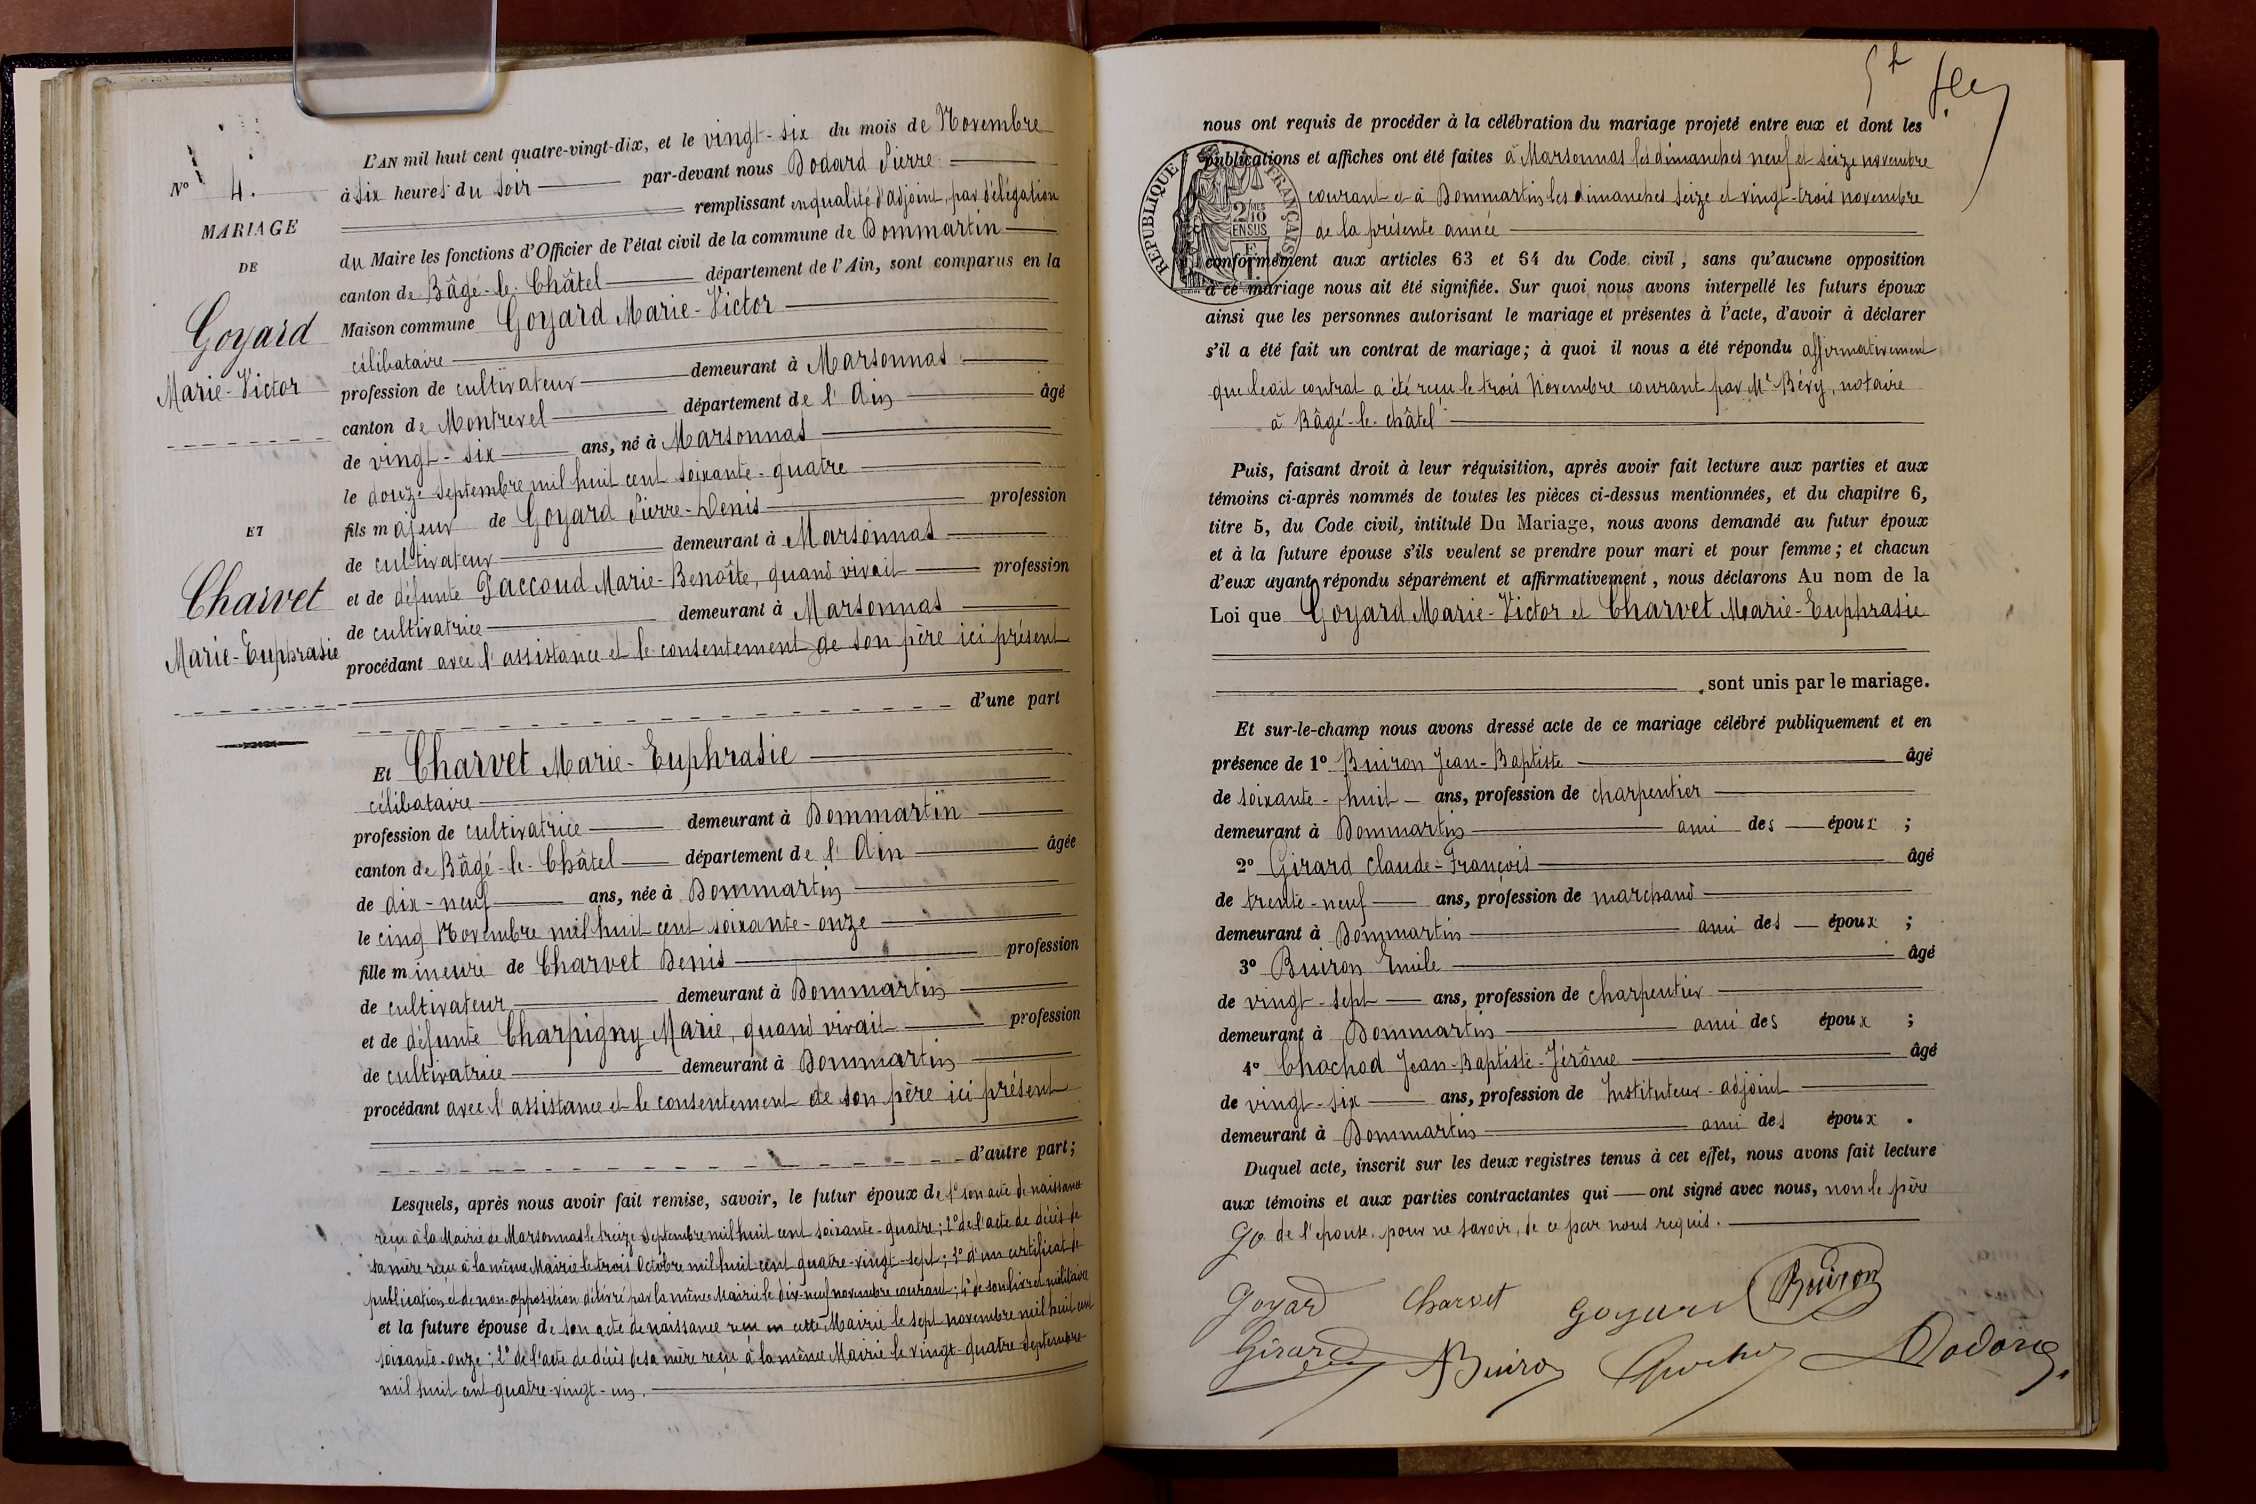 N° 4.
MARIAGE
DE
Goyard
Marie-Victor
ET
Charvet
Marie-Euphrasie
L'AN mil huit cent quatre-vingt-dix, et le vingt-six du mois de Novembre
à six heures du soir par-devant nous Dodard Pierre
remplissant en qualité d'adjoint, par délégation
du Maire les fonctions d'Officier de l'état civil de la commune de Dommartin
canton de Bâgé-le-Châtel département de l'Ain, sont comparus en la
Maison commune Goyard Marie-Victor
célibataire
profession de cultivateur demeurant à Marsonnas
canton de Montrevel département de l'Ain âgé
de vingt-six ans, né à Marsonnas
le douze septembre mil huit cent soixante-quatre
fils majeur de Goyard Pierre-Denis profession
de cultivateur demeurant à Marsonnas
et de défunte Paccoud Marie-Benoîte, quand vivait profession
de cultivatrice demeurant à Marsonnas
procédant avec l'assistance et le consentement de son père ici présent
d'une part
Et Charvet Marie-Euphrasie
célibataire
profession de cultivatrice demeurant à Dommartin
canton de Bâgé-le-Châtel département de l'Ain âgée
de dix-neuf ans, née à Dommartin
le cinq Novembre mil huit cent soixante-onze
fille mineure de Charvet Denis profession
de cultivateur demeurant à Dommartin
et de défunte Charpigny Marie, quand vivait profession
de cultivatrice demeurant à Dommartin
procédant avec l'assistance et le consentement de son père ici présent
d'autre part;
Lesquels, après nous avoir fait remise, savoir, le futur époux de 1° son acte de naissance
reçu à la Mairie de Marsonnas le treize Septembre mil huit cent soixante-quatre; 2° de l'acte de décès de
sa mère reçu à la même Mairie le trois Octobre mil huit cent quatre-vingt-sept; 3° d'un certificat de
publication et de non-opposition délivré par la même Mairie le dix-neuf novembre courant; 4° de son livret militaire
et la future épouse de son acte de naissance reçu en cette Mairie le sept novembre mil huit cent
soixante-onze; 2° de l'acte de décès de sa mère reçu à la même Mairie le vingt-quatre Septembre
mil huit cent quatre-vingt-un.
nous ont requis de procéder à la célébration du mariage projeté entre eux et dont les
publications et affiches ont été faites à Marsonnas les dimanches neuf et seize novembre
courant et à Dommartin les dimanches seize et vingt-trois novembre
de la présente année
RÉPUBLIQUE FRANÇAISE
2/10
EN SUS
conformément aux articles 63 et 64 du Code civil, sans qu'aucune opposition
à ce mariage nous ait été signifiée. Sur quoi nous avons interpellé les futurs époux
ainsi que les personnes autorisant le mariage et présentes à l'acte, d'avoir à déclarer
s'il a été fait un contrat de mariage; à quoi il nous a été répondu affirmativement
que ledit contrat a été reçu le trois Novembre courant par Me Béry, notaire
à Bâgé-le-châtel
Puis, faisant droit à leur réquisition, après avoir fait lecture aux parties et aux
témoins ci-après nommés de toutes les pièces ci-dessus mentionnées, et du chapitre 6,
titre 5, du Code civil, intitulé Du Mariage, nous avons demandé au futur époux
et à la future épouse s'ils veulent se prendre pour mari et pour femme; et chacun
d'eux ayant répondu séparément et affirmativement, nous déclarons Au nom de la
Loi que Goyard Marie-Victor et Charvet Marie-Euphrasie
sont unis par le mariage.
Et sur-le-champ nous avons dressé acte de ce mariage célébré publiquement et en
présence de 1° Buiron Jean-Baptiste âgé
de soixante-huit ans, profession de charpentier
demeurant à Dommartin ami des époux ;
2° Girard Claude-François âgé
de trente-neuf ans, profession de marchand
demeurant à Dommartin ami des époux ;
3° Buiron Emile âgé
de vingt-sept ans, profession de charpentier
demeurant à Dommartin ami des époux ;
4° Chochod Jean-Baptiste-Jérôme âgé
de vingt-six ans, profession de Instituteur-adjoint
demeurant à Dommartin ami des époux .
Duquel acte, inscrit sur les deux registres tenus à cet effet, nous avons fait lecture
aux témoins et aux parties contractantes qui ont signé avec nous, non le père
Go de l'épouse, pour ne savoir, de ce par nous requis.
Goyard Charvet Goyard Buiron
Girard Buiron Dodard